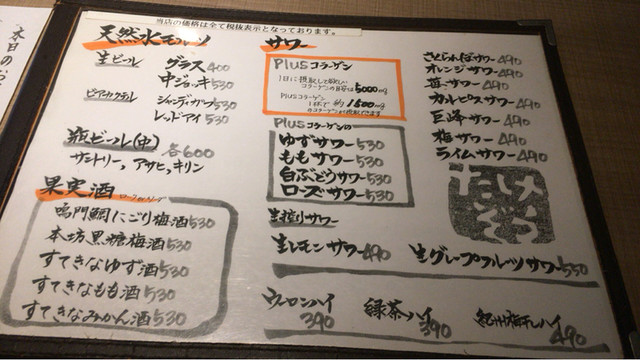 当店の価格は全て税抜表示となっております。
天然水モルツ
生ビール グラス 400
中ジョッキ 530
ビアカクテル シャンディガフ 530
レッドアイ 530
瓶ビール(中) 各600
サントリー、アサヒ、キリン
果実酒
鳴門鯛にごり梅酒 530
本坊黒糖梅酒 530
すてきなゆず酒 530
すてきなもも酒 530
すてきなみかん酒 530
サワー
Plusコラーゲン
1日に摂取して欲しい
コラーゲンの目安は5000mg
Plusコラーゲン
1杯で約1500mg
のコラーゲンが摂取できます
Plusコラーゲンの
ゆずサワー 530
ももサワー 530
白ぶどうサワー 530
ローズサワー 530
生搾りサワー
生レモンサワー 490
生グレープフルーツサワー 550
ウーロンハイ 390
緑茶ハイ 390
紀州梅干しハイ 490
さくらんぼサワー 490
オレンジサワー 490
カルピスサワー 490
巨峰サワー 490
梅サワー 490
ライムサワー 490
本日のお